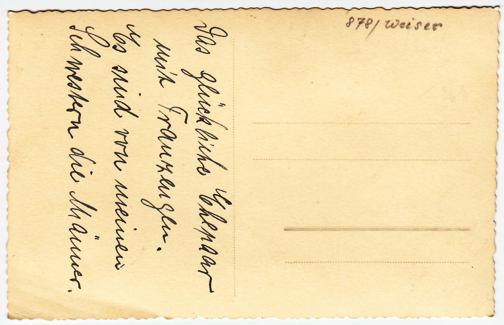 878/Weiser
Das glückliche Ehepaar
mit Trauzeugen.
Es sind von meinen
Schwestern die Männer.